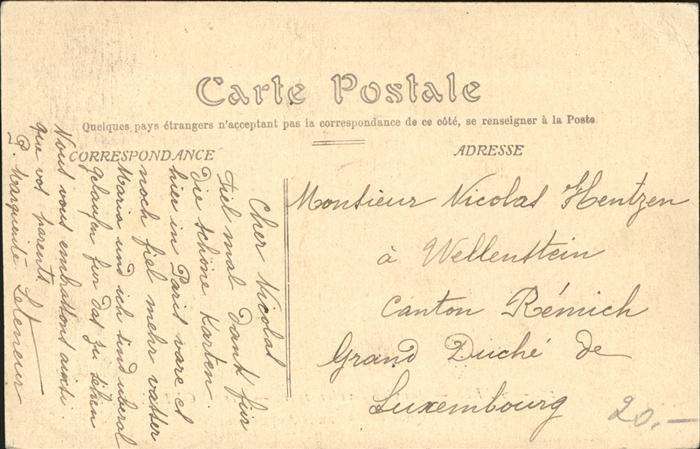 Carte Postale
Quelques pays étrangers n'acceptant pas la correspondance de ce côté, se renseigner à la Poste
CORRESPONDANCE
Cher Nicolas
Fiel mal Dank für
Die schöne Karten
hier in Paris vare es
noch fiel mehr vasser
Maria und ich sind uberal
gelaufen fur das zu sehen
Nous vous embrassons ainsi
que vos parents
P. Marguerite Leteneur
ADRESSE
Monsieur Nicolas Hentzen
à Wellenstein
Canton Rémich
Grand Duché de
Luxembourg
20.-